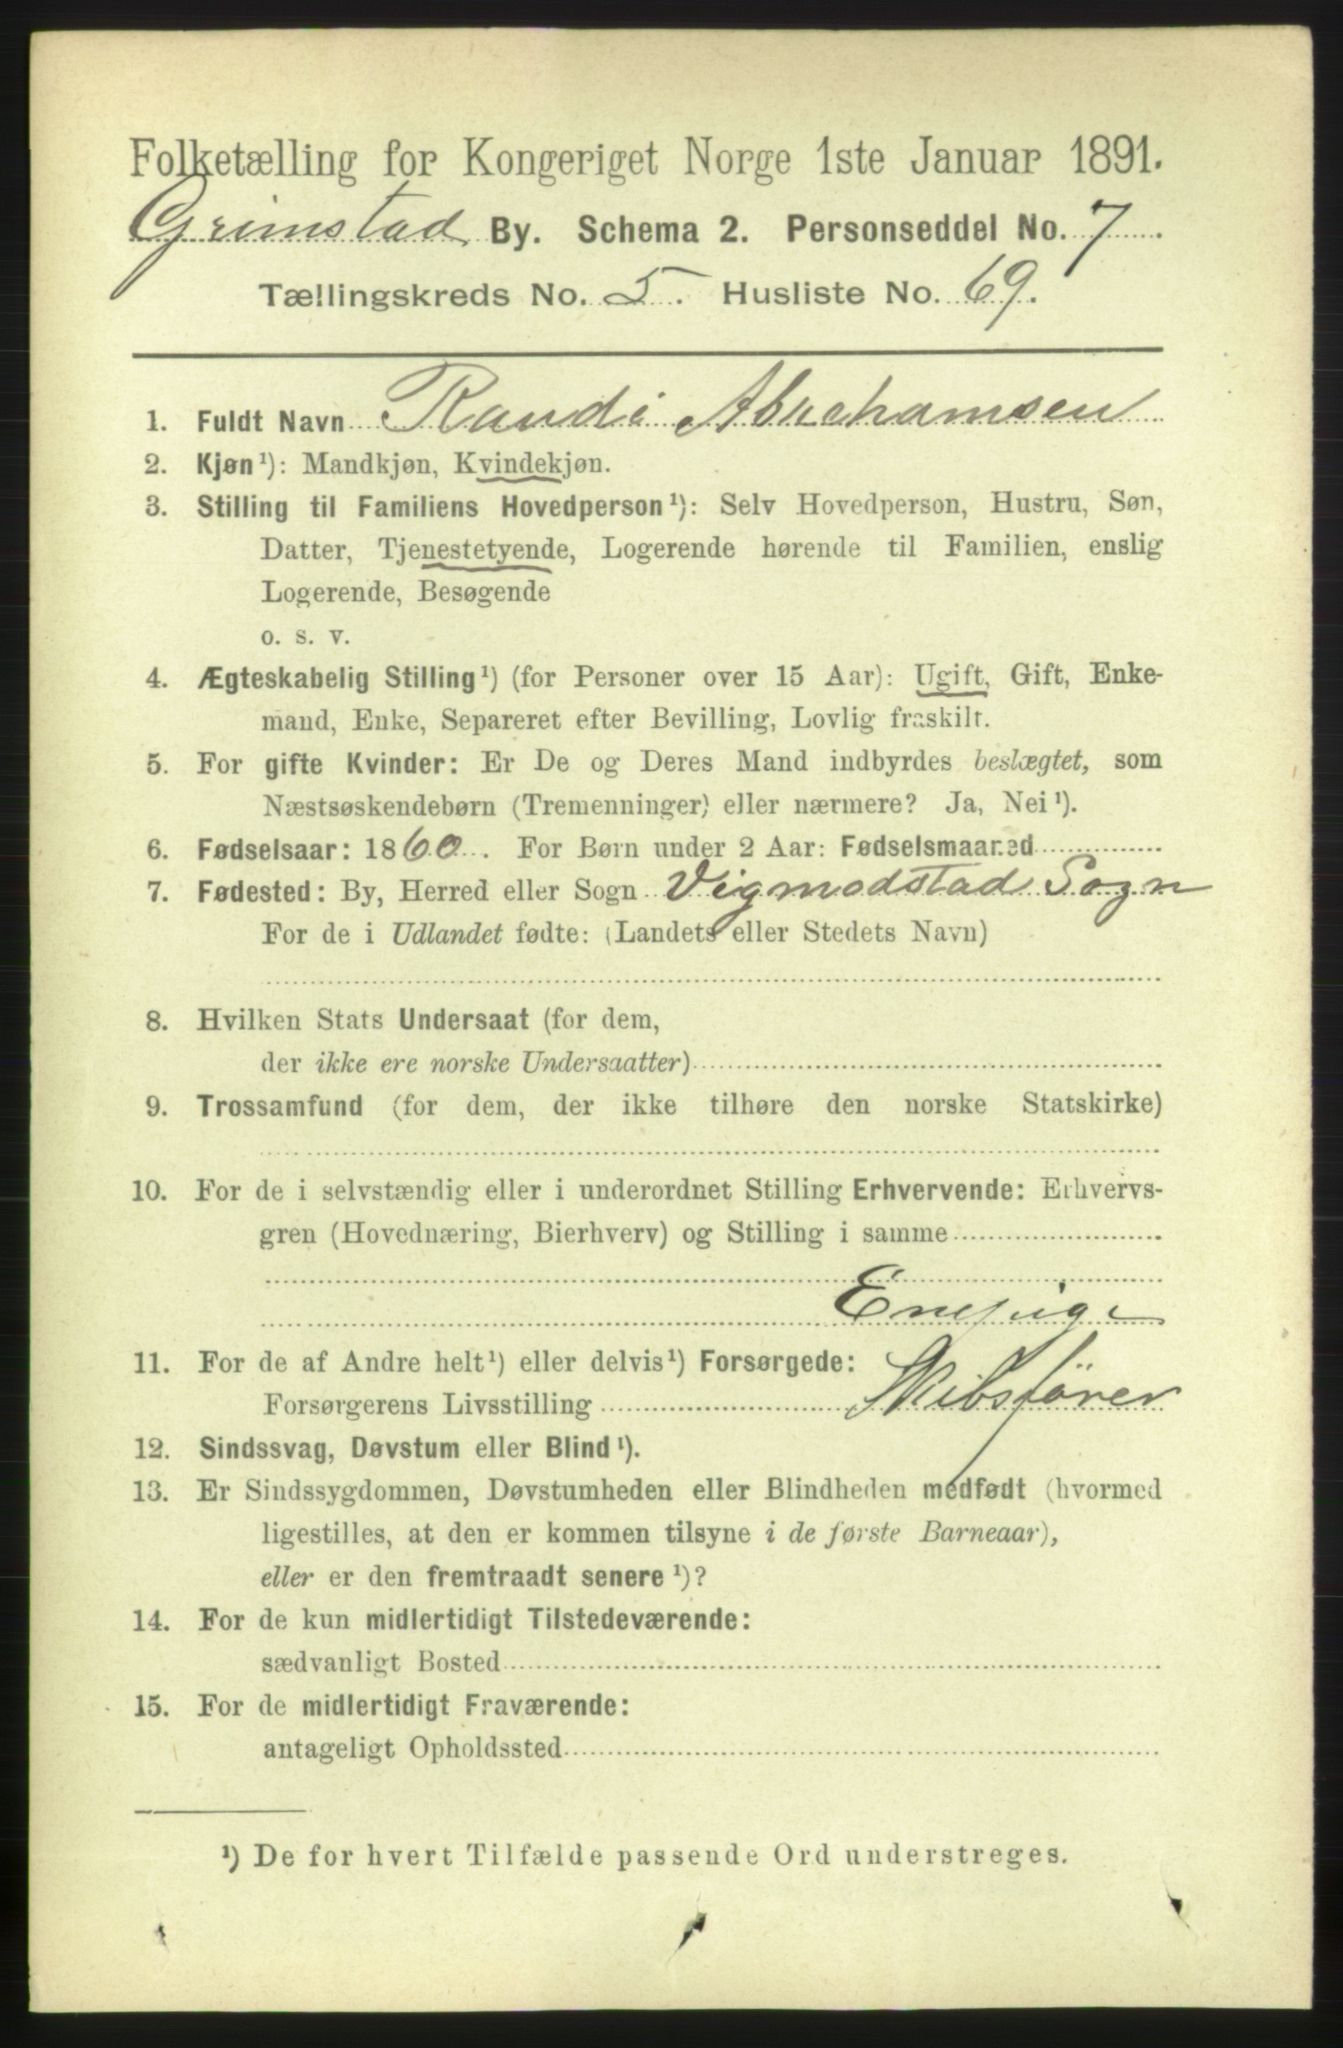 Folketælling for Kongeriget Norge 1ste Januar 1891.
Grimstad By. Schema 2. Personseddel No. 7
Tællingskreds No. 5. Husliste No. 69.
1. Fuldt Navn Randi Abrahamsen
2. Kjøn¹): Mandkjøn, Kvindekjøn.
3. Stilling til Familiens Hovedperson¹): Selv Hovedperson, Hustru, Søn,
Datter, Tjenestetyende, Logerende hørende til Familien, enslig
Logerende, Besøgende
o. s. v.
4. Ægteskabelig Stilling¹) (for Personer over 15 Aar): Ugift, Gift, Enke-
mand, Enke, Separeret efter Bevilling, Lovlig fraskilt.
5. For gifte Kvinder: Er De og Deres Mand indbyrdes beslægtet, som
Næstsøskendebørn (Tremenninger) eller nærmere? Ja, Nei¹).
6. Fødselsaar: 1860. For Børn under 2 Aar: Fødselsmaaned
7. Fødested: By, Herred eller Sogn Vigmodstad Sogn
For de i Udlandet fødte: (Landets eller Stedets Navn)
8. Hvilken Stats Undersaat (for dem,
der ikke ere norske Undersaatter)
9. Trossamfund (for dem, der ikke tilhøre den norske Statskirke)
10. For de i selvstændig eller i underordnet Stilling Erhvervende: Erhvervs-
gren (Hovednæring, Bierhverv) og Stilling i samme
Enepige
11. For de af Andre helt¹) eller delvis¹) Forsørgede:
Forsørgerens Livsstilling Skibsfører
12. Sindssvag, Døvstum eller Blind¹).
13. Er Sindssygdommen, Døvstumheden eller Blindheden medfødt (hvormed
ligestilles, at den er kommen tilsyne i de første Barneaar),
eller er den fremtraadt senere¹)?
14. For de kun midlertidigt Tilstedeværende:
sædvanligt Bosted
15. For de midlertidigt Fraværende:
antageligt Opholdssted
¹) De for hvert Tilfælde passende Ord understreges.